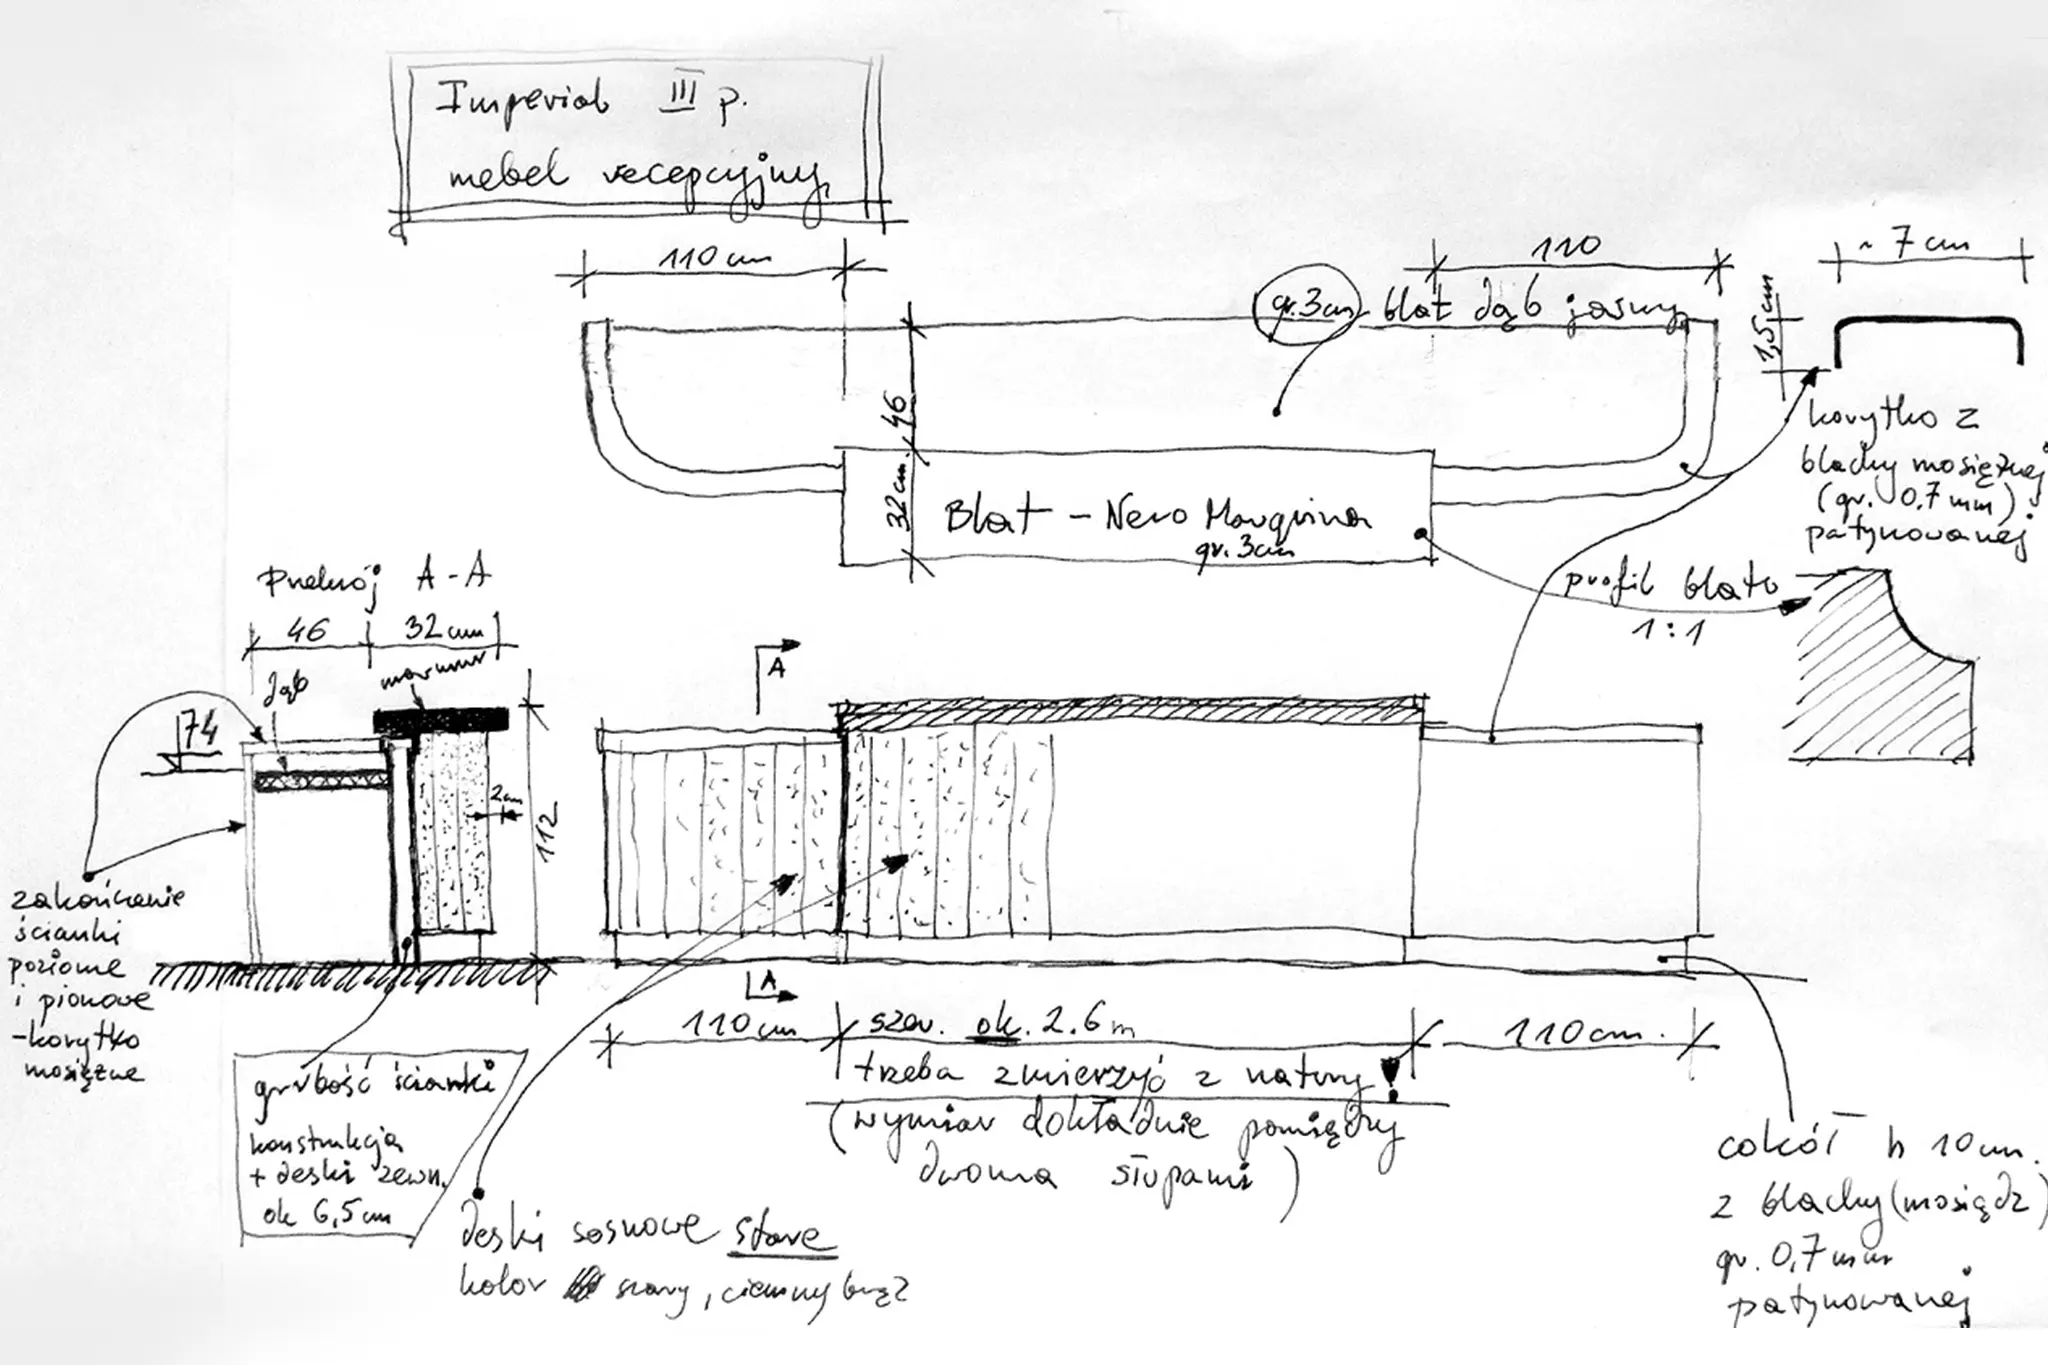 Imperial III p.
mebel recepcyjny
110 cm
110
~ 7 cm
gr. 3cm blat dąb jasny
1,5cm
46
32cm.
Blat - Nero Marquina
gr. 3cm
korytko z
blachy mosiężnej
(gr. 0.7 mm)
patynowanej
profil blatu
1:1
Przekrój A-A
46
32cm
dąb
marmur
74
2cm
112
A
A
zakończenie
ścianki
poziome
i pionowe
-korytko
mosiężne
grubość ścianki
konstrukcja
+ deski zewn.
ok 6,5cm
110cm
szer. ok. 2.6m
110cm.
trzeba zmierzyć z natury !
(wymiar dokładnie pomiędzy
dwoma słupami)
deski sosnowe stare
kolor szary, ciemny brąz
cokół h 10cm.
z blachy (mosiądz)
gr. 0,7mm
patynowanej